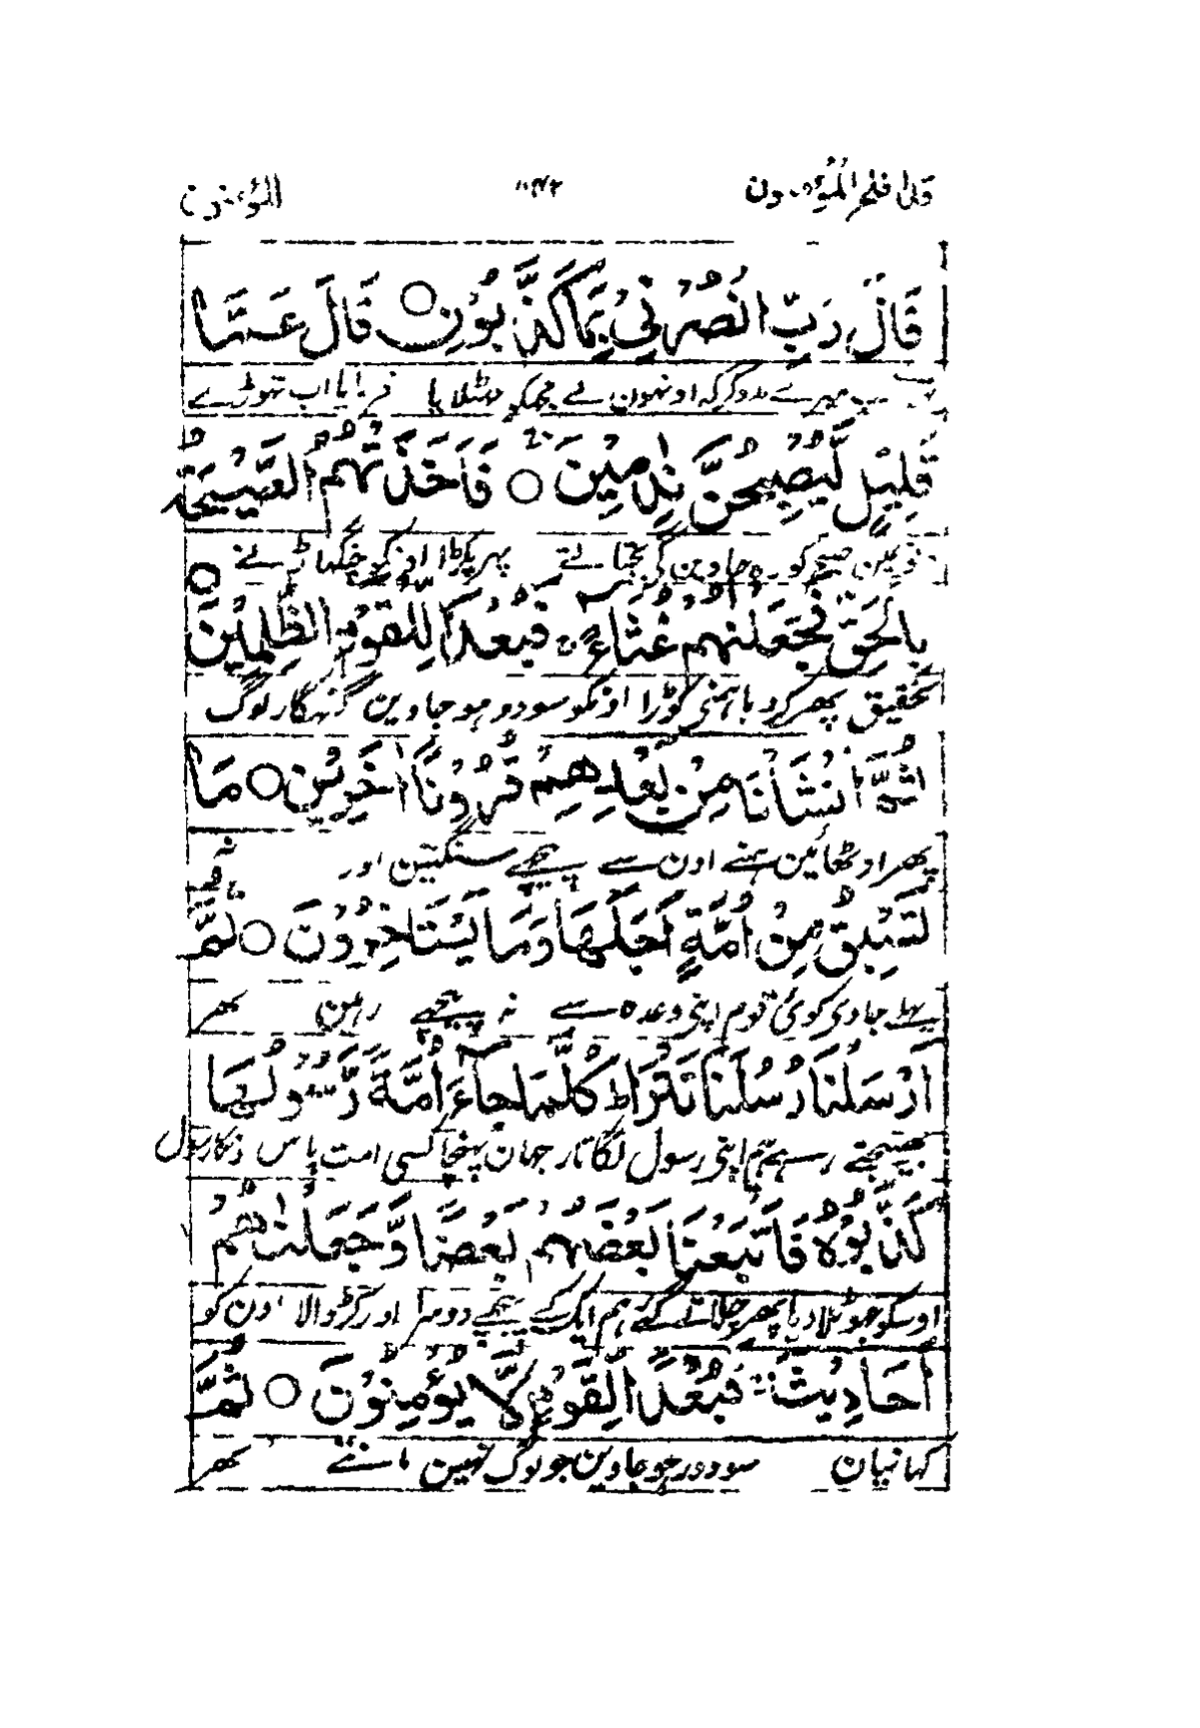 قد افلح المؤمنون ۱۱۴۲ المؤمنون
قَالَ رَبِّ انْصُرْنِيْ بِمَا كَذَّبُوْنِ ○ قَالَ عَمَّا
میرے مدد کر کہ اونہون نے مجھکو جھٹلایا فرمایا اب تھوڑے
قَلِيْلٍ لَّيُصْبِحُنَّ نٰدِمِيْنَ ○ فَاَخَذَتْهُمُ الصَّيْحَةُ
صبح کو رہ جاوین گے پچتاتے پہر پکڑا اونکو چنگھاڑ نے
بِالْحَقِّ فَجَعَلْنٰهُمْ غُثَآءً ۚ فَبُعْدًا لِّلْقَوْمِ الظّٰلِمِيْنَ ○
تحقیق پھر کردیا ہمنی کوڑا اونکو سو دور ہو جاوین گنہگار لوگ
ثُمَّ اَنْشَاْنَا مِنْۢ بَعْدِهِمْ قُرُوْنًا اٰخَرِيْنَ ○ مَا
پھر اوٹھائین ہمنے اون سے پیچھے سنگتین اور نہ
تَسْبِقُ مِنْ اُمَّةٍ اَجَلَهَا وَمَا يَسْتَاْخِرُوْنَ ○ ثُمَّ
پہلے جاوی کوئی قوم اپنی وعدہ سے نہ پیچھے رہین پھر
اَرْسَلْنَا رُسُلَنَا تَتْرَا ط كُلَّمَا جَآءَ اُمَّةً رَّسُوْلُهَا
بھیجتے رہے ہم اپنی رسول لگاتار جہان پہنچا کسی امت پاس ونکا رسول
كَذَّبُوْهُ فَاَتْبَعْنَا بَعْضَهُمْ بَعْضًا وَّجَعَلْنٰهُمْ
اوسکو جھوٹلا دیا پھر چلاتے گئے ہم ایک کے پیچھے دوسرا اور کر ڈالا اون کو
اَحَادِيْثَ ۚ فَبُعْدًا لِّقَوْمٍ لَّا يُؤْمِنُوْنَ ○ ثُمَّ
کہانیان سو دور ہو جاوین جو لوگ نہین مانتے پھر